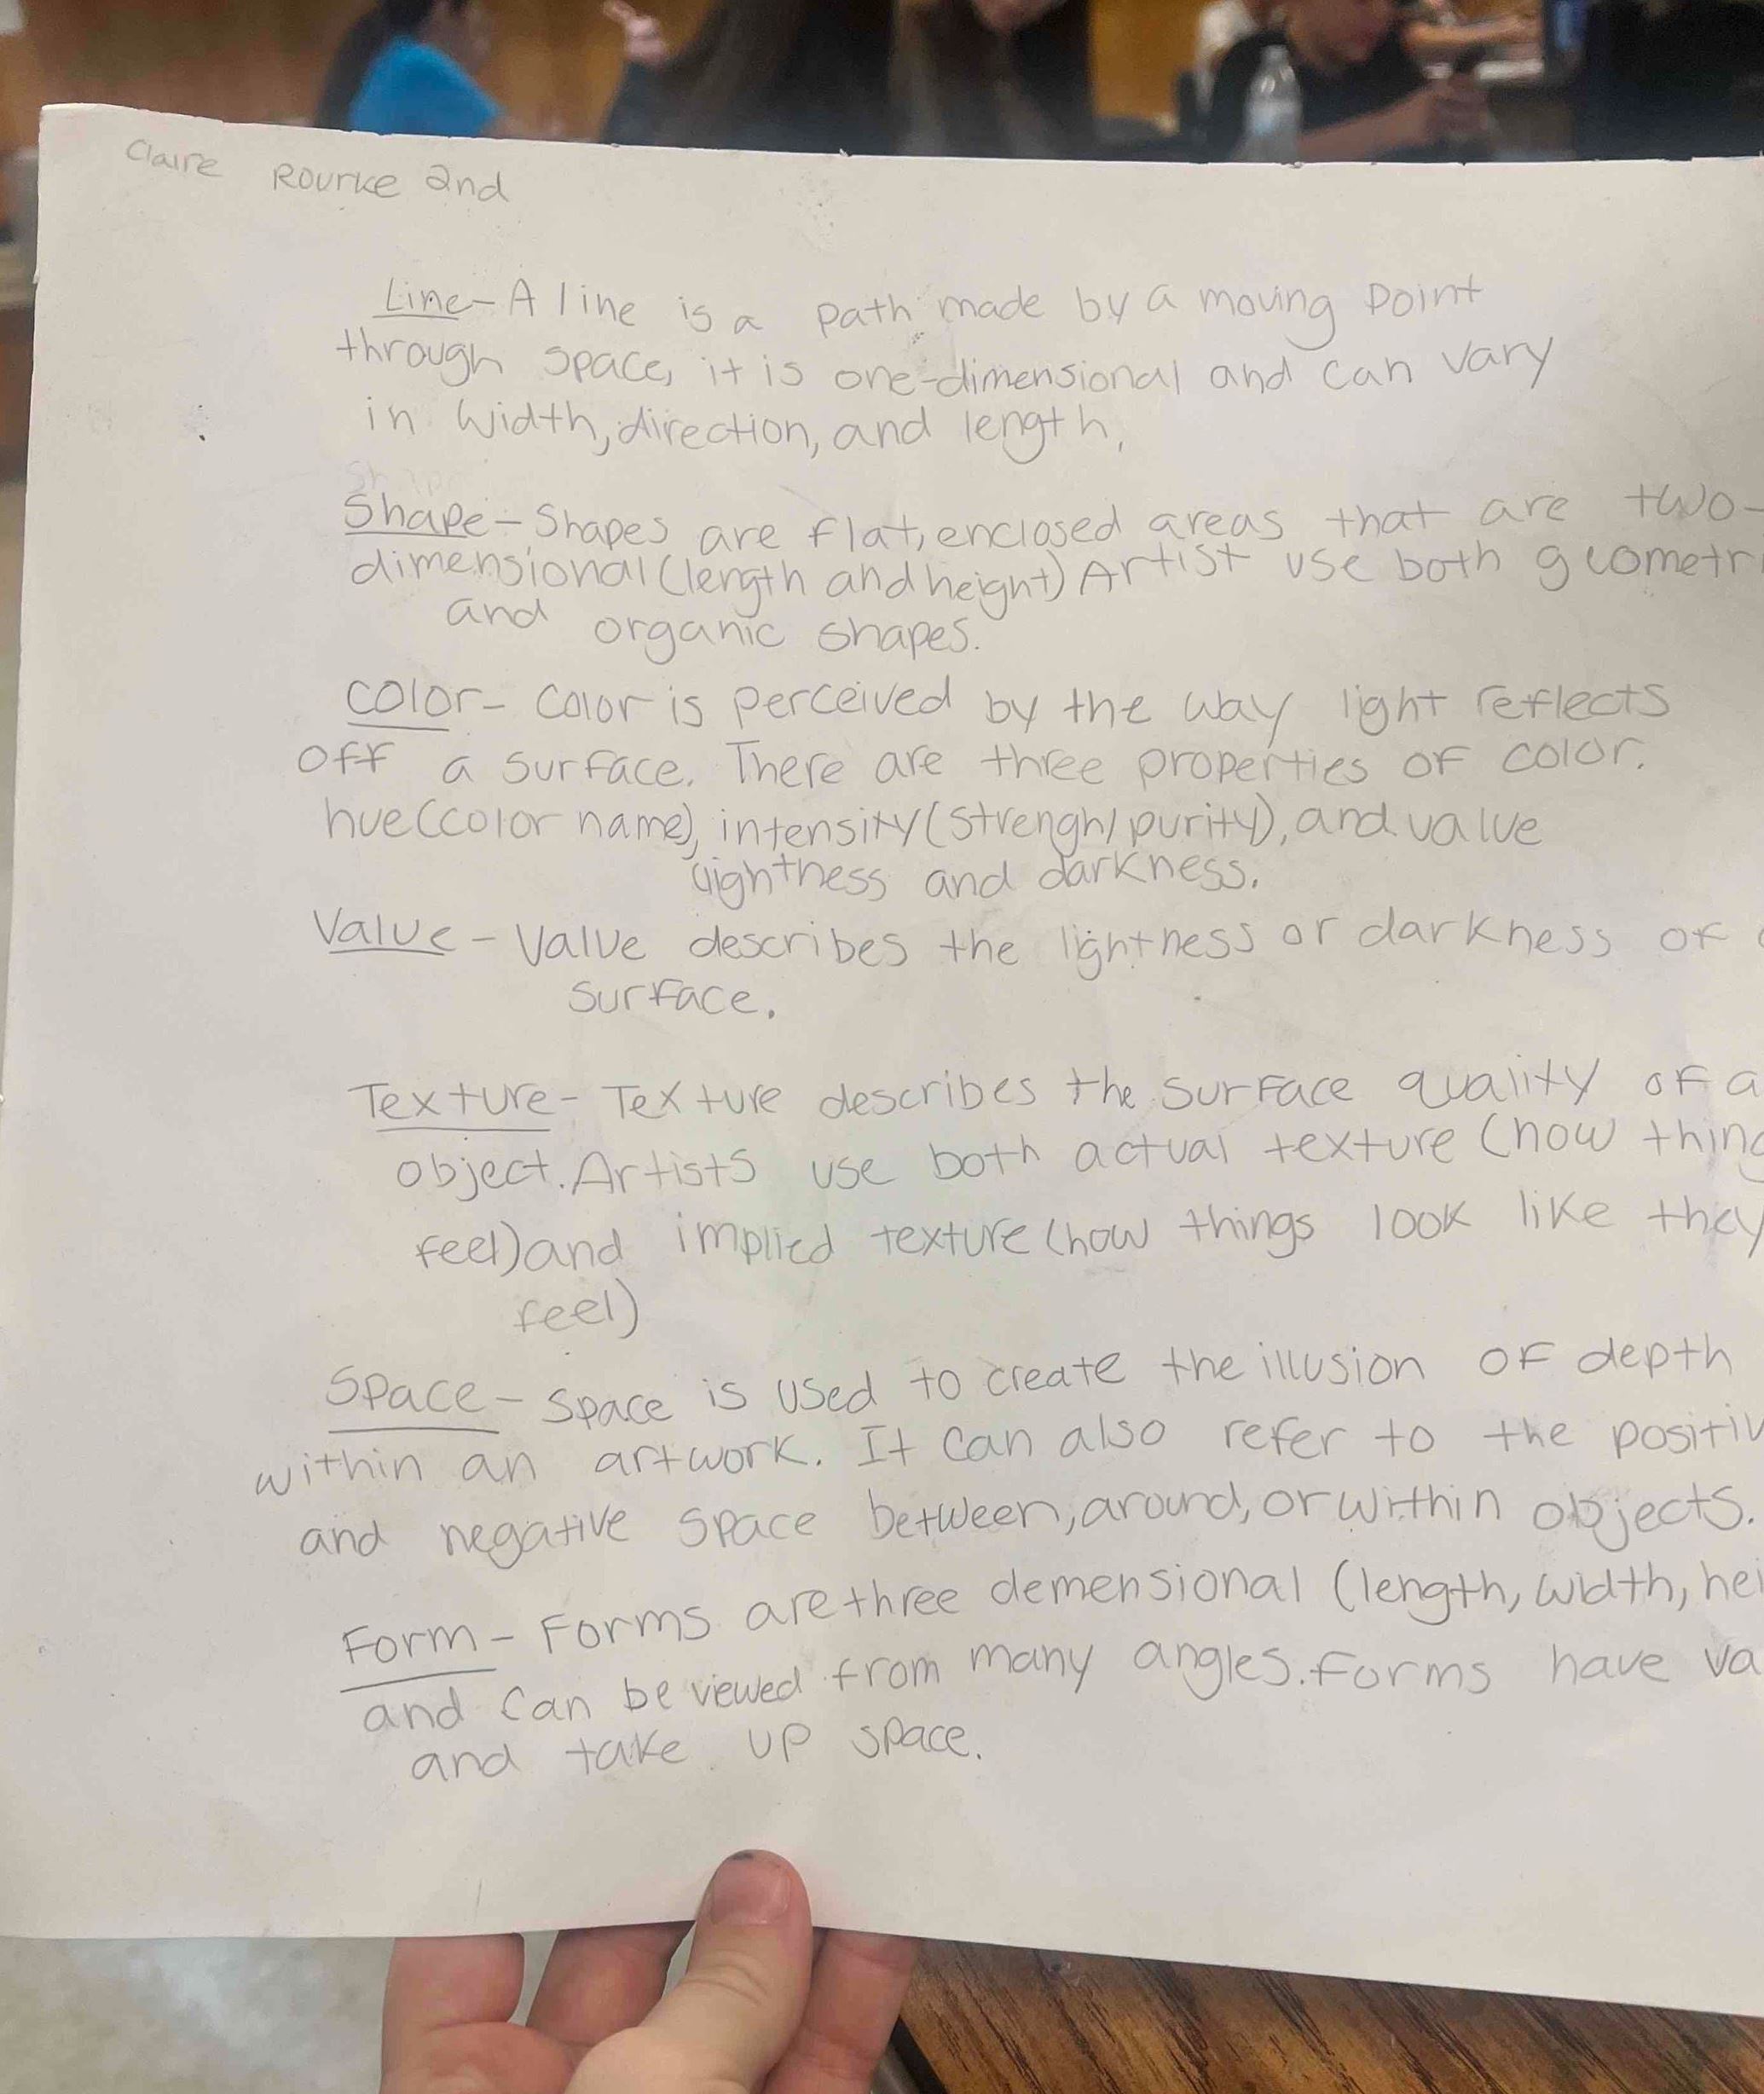 Claire Rourke 2nd
Line - A line is a path made by a moving point
through space, it is one-dimensional and can vary
in width, direction, and length,
Shape - Shapes are flat, enclosed areas that are two-
dimensional (length and height) Artist use both geometri
and organic shapes.
Color - Color is perceived by the way light reflects
off a surface. There are three properties of color.
hue (color name), intensity (strengh/purity), and value
lightness and darkness.
Value - Value describes the lightness or darkness of
surface.
Texture - Texture describes the surface quality of a
object. Artists use both actual texture (how thing
feel) and implied texture (how things look like they
feel)
Space - Space is used to create the illusion of depth
within an artwork. It can also refer to the positiv
and negative space between, around, or within objects.
Form - Forms are three demensional (length, width, hei
and can be viewed from many angles. Forms have va
and take up space.